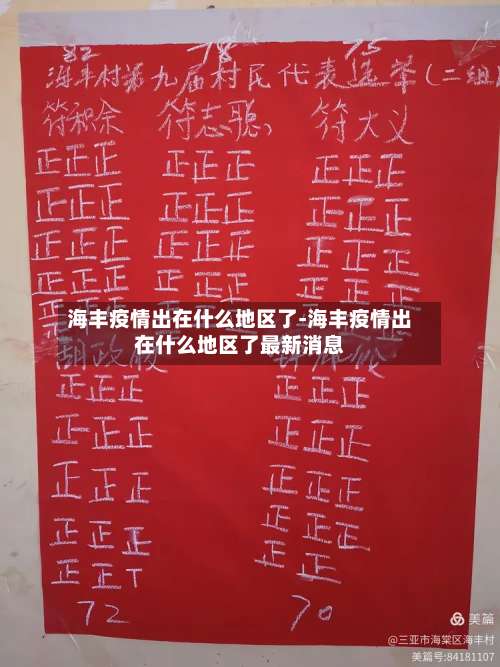 82 78 75
海丰村第九届村民代表选举(二组
符积余 符志聪 符大义
正正正 正正正 正正正
正正正 正正正 正正正
正正正 正正正 正正正
正正正 正正正 正正正
海丰疫情出在什么地区了-海丰疫情出
在什么地区了最新消息
胡政
正正正 正正正
正正正 正正正
正正正 正正正
正正正 正正正
正正T 正正
72 70
美篇
@三亚市海棠区海丰村
美篇号:84181107